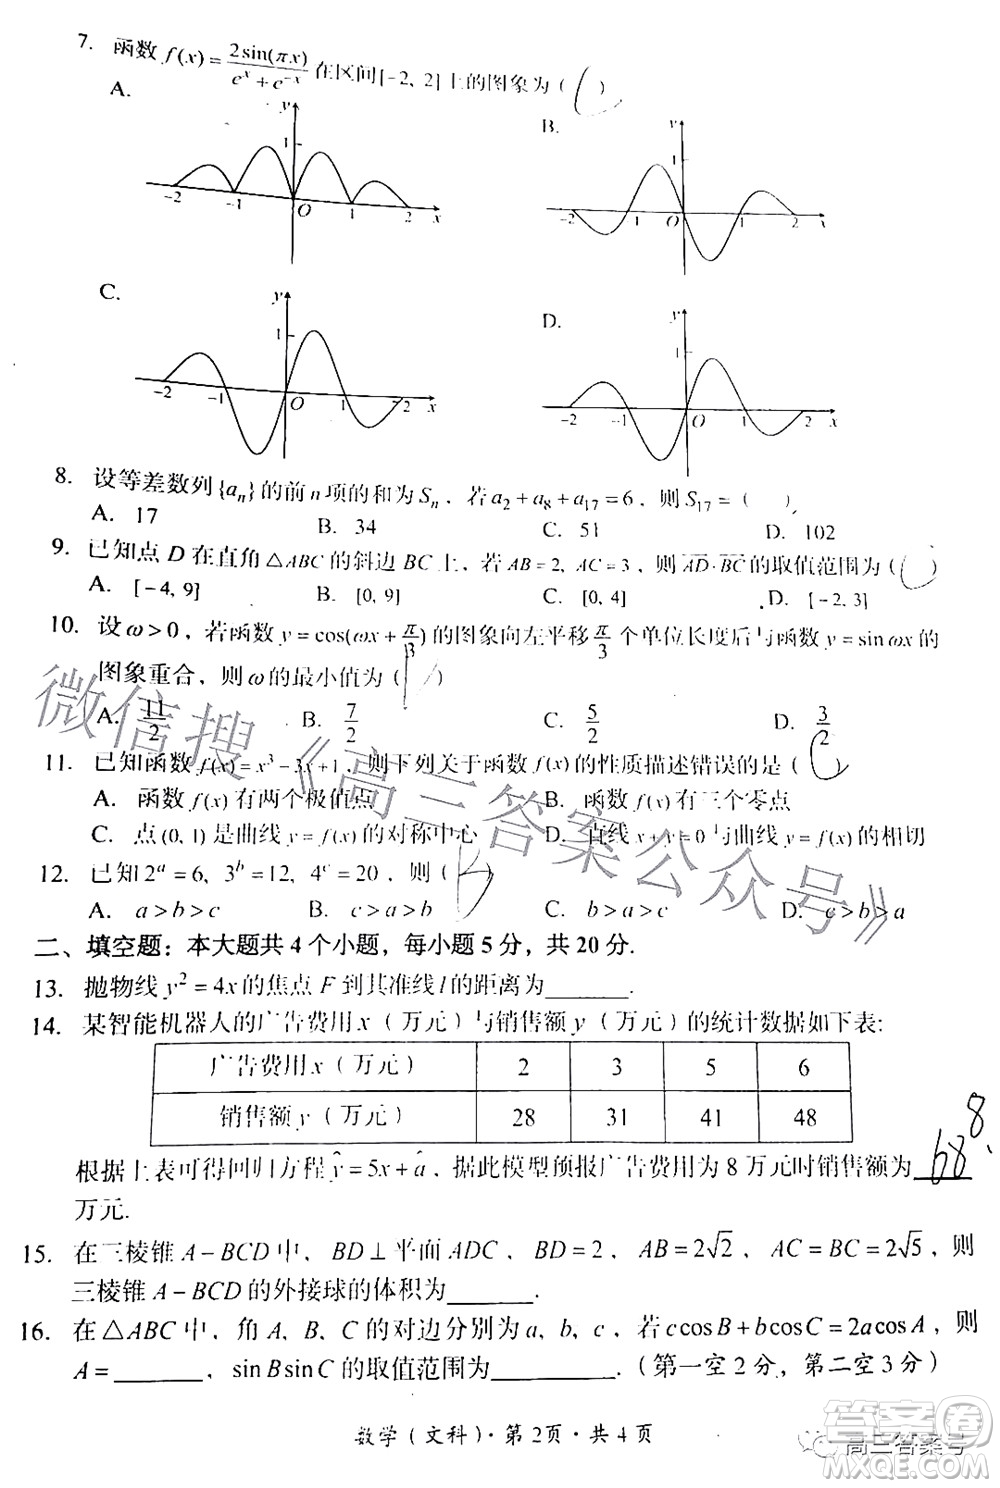 7. 函数 f(x) = 2sin(πx) / (e^x + e^-x) 在区间[-2, 2]上的图象为( )
A. B.
y 1 -2 -1 O 1 2 x
y 1 -2 -1 O 1 2 x
C. D.
y 1 -2 -1 O 1 2 x
y 1 -2 -1 O 1 2 x
8. 设等差数列{a_n}的前n项的和为S_n，若a_2+a_8+a_17=6，则S_17=( )
A. 17 B. 34 C. 51 D. 102
9. 已知点D在直角△ABC的斜边BC上，若AB=2, AC=3，则AD·BC的取值范围为( )
A. [-4, 9] B. [0, 9] C. [0, 4] D. [-2, 3]
10. 设ω>0，若函数y=cos(ωx+π/3)的图象向左平移π/3个单位长度后与函数y=sinωx的
图象重合，则ω的最小值为( )
A. 11/2 B. 7/2 C. 5/2 D. 3/2
11. 已知函数f(x)=x³-3x+1，则下列关于函数f(x)的性质描述错误的是( )
A. 函数f(x)有两个极值点 B. 函数f(x)有三个零点
C. 点(0, 1)是曲线y=f(x)的对称中心 D. 直线x+y=0与曲线y=f(x)的相切
12. 已知2^a=6, 3^b=12, 4^c=20，则( )
A. a>b>c B. c>a>b C. b>a>c D. c>b>a
二、填空题：本大题共4个小题，每小题5分，共20分.
13. 抛物线y²=4x的焦点F到其准线l的距离为______.
14. 某智能机器人的广告费用x（万元）与销售额y（万元）的统计数据如下表:
广告费用x（万元） 2 3 5 6
销售额y（万元） 28 31 41 48
根据上表可得回归方程ŷ=5x+â，据此模型预报广告费用为8万元时销售额为______
万元.
15. 在三棱锥A-BCD中，BD⊥平面ADC，BD=2，AB=2√2，AC=BC=2√5，则
三棱锥A-BCD的外接球的体积为______.
16. 在△ABC中，角A, B, C的对边分别为a, b, c，若c cosB+b cosC=2a cosA，则
A=______，sinBsinC的取值范围为______.（第一空2分，第二空3分）
数学（文科）·第2页·共4页
微信搜《高三答案公众号》
高三答案号
答案卷
MXQE.COM